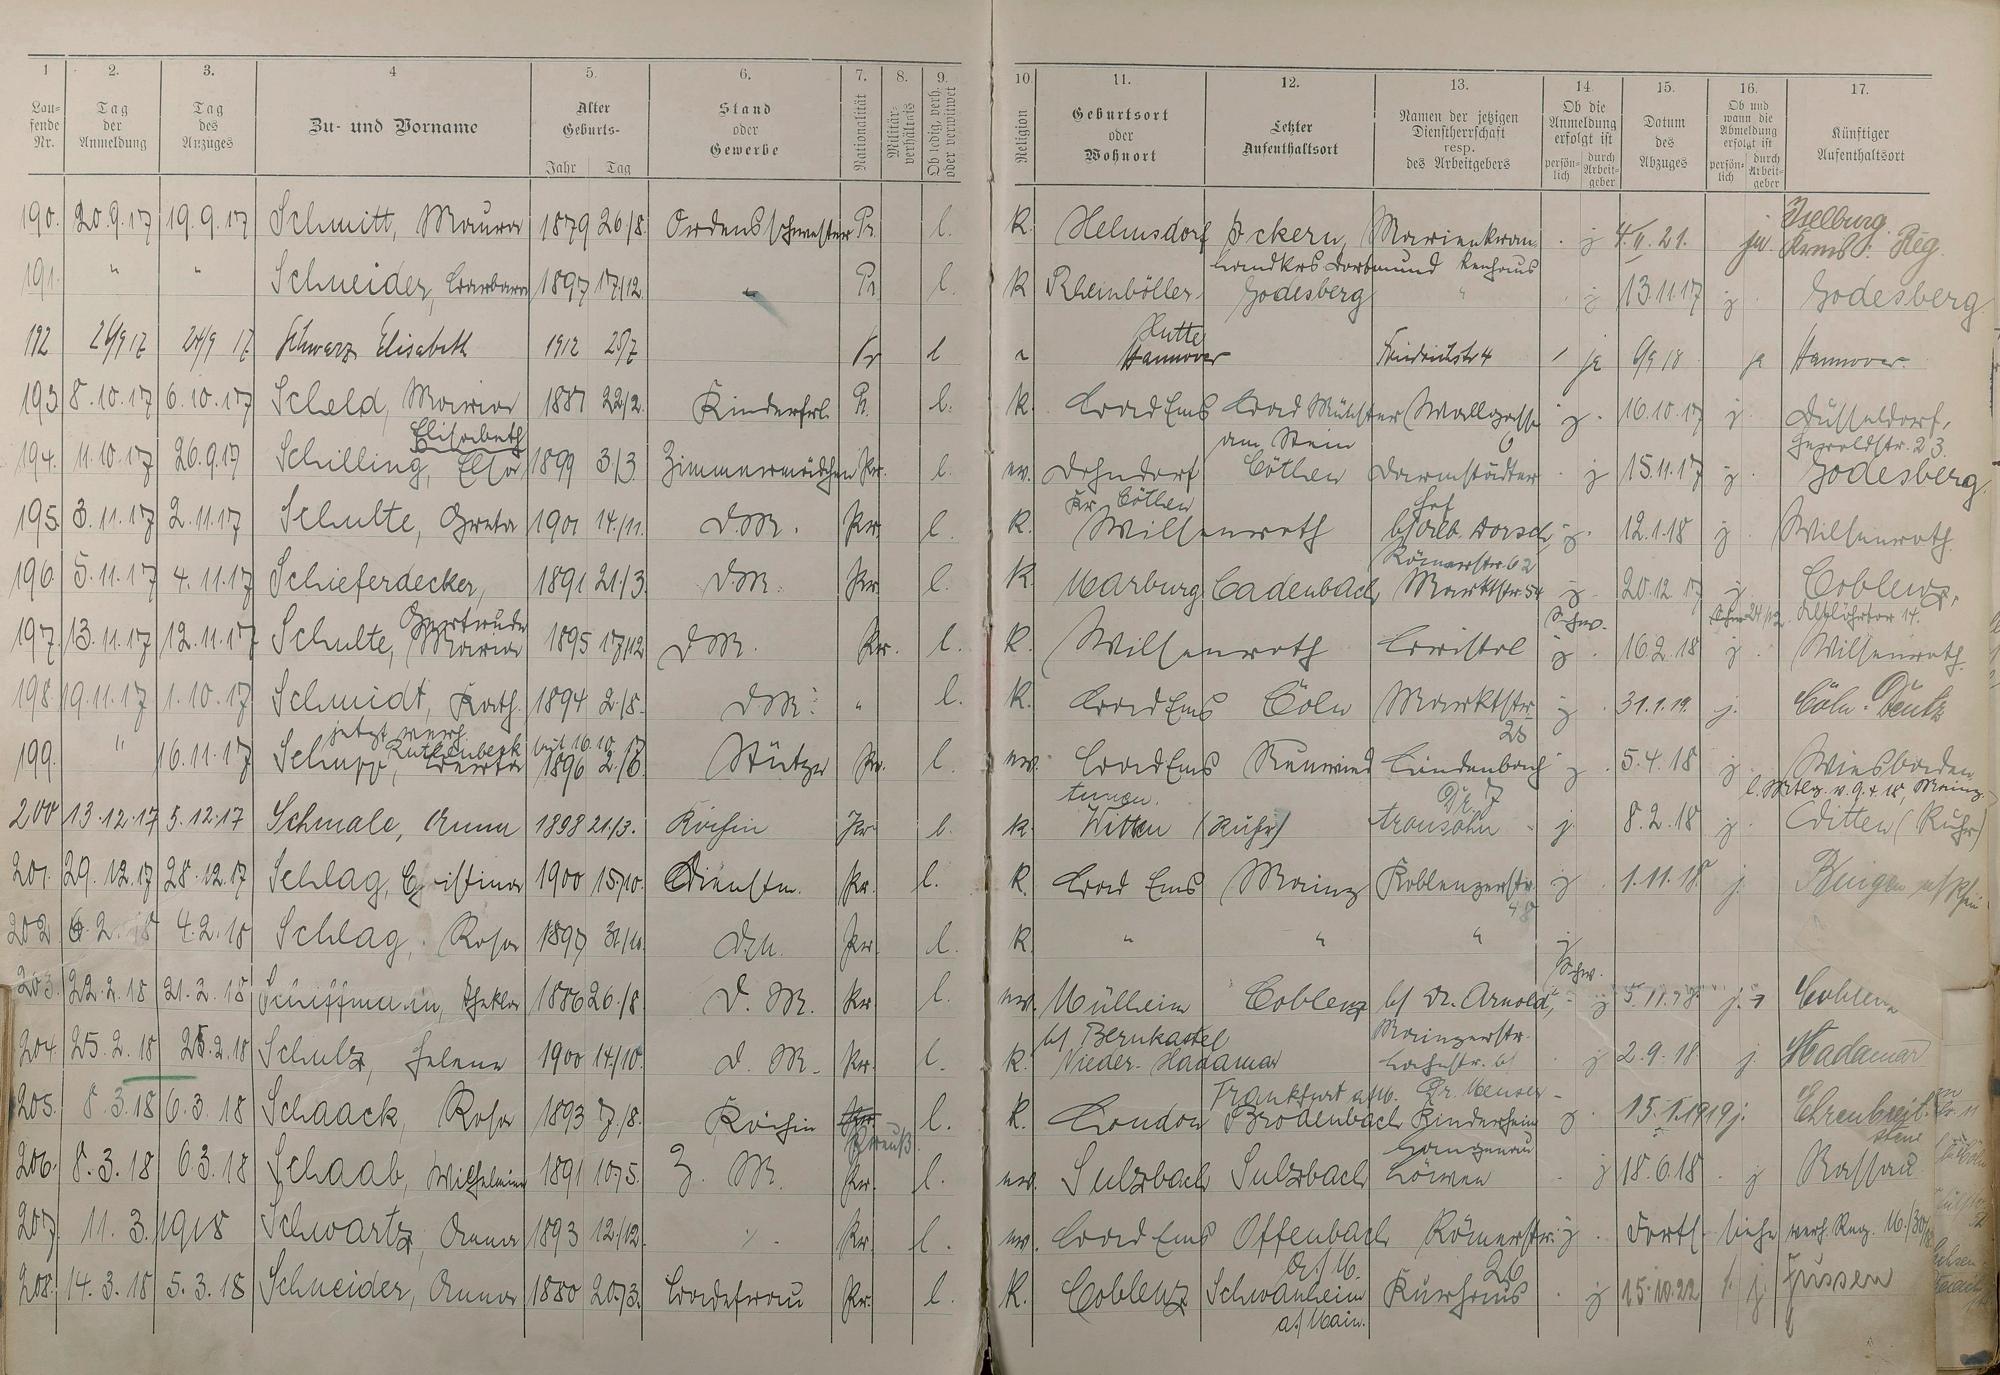 1 2. 3. 4 5. 6. 7. 8. 9. 10. 11. 12. 13. 14. 15. 16. 17.
Lau- fende Nr. Tag der Anmeldung Tag des Anzuges Zu- und Vorname Alter Geburts- Jahr Tag Stand oder Gewerbe Nationalität Militär- verhältnis Ob ledig, verh. oder verwitwet Religion Geburtsort oder Wohnort Letzter Aufenthaltsort Namen der jetzigen Dienstherrschaft resp. des Arbeitgebers Ob die Anmeldung erfolgt ist persön- lich durch Arbeit- geber Datum des Abzuges Ob und wann die Abmeldung erfolgt ist persön- lich durch Arbeit- geber Künftiger Aufenthaltsort
190. 20.9.17 19.9.17 Schmitt, Maura 1879 26/8. Ordensschwester Pr. l. K. Helmsdorf Eckern, Marienkran- j 4.II.21. Isselburg
Landkrs Dortmund kenhaus
191. " " Schneider, Barbara 1897 17/12. " Pr l. K Rheinböller Godesberg " j 13.11.17 j Godesberg
192 26/9 17 24/9 17 Schwarz Elisabeth 1912 25/7 Pr l Hannover Friedrichstr 4 ja 6/9 18 ja Hannover.
193 8.10.17 6.10.17 Scheld, Maria 1887 22/2. Kinderfrl. Pr. l. K. Bad Ems Bad Münster Wallgasse j. 16.10.17 j. Düsseldorf,
Elisabeth am Stein 6 23.
194. 11.10.17 26.9.17 Schilling, Elsa 1899 3/3. Zimmermädchen Pr. l. ev. Dohndorf Cöthen Darmstädter j 15.11.17 j. Godesberg
Kr. Cöthen Hof
195. 3.11.17 2.11.17 Schulte, Greta 1901 14./11. D.M. Pr. l. K. Wilsenroth b/ Dorsch j. 12.1.18 j. Wilsenroth
Römerstr. 62
196 5.11.17 4.11.17 Schieferdecker, 1891 21./3. DM. Pr. l. K. Marburg Cadenbach Marktstr. 54 j. 20.12.17 j. Coblenz,
Gertrude Schw. Altlöhrtor 14.
197. 13.11.17 12.11.17 Schulte, Maria 1895 17/12 DM. Pr. l. K. Wilsenroth Bristol j. 16.2.18 j. Wilsenroth.
198. 19.11.17 1.10.17 Schmidt, Kath. 1894 2./8. DM. " l. K. Bad Ems Cöln Marktstr. j. 31.1.19. j. Cöln-Deutz
jetzt verh. 28
199. " 16.11.17 Schupp, 1896 2./6. Stütze Pr. l. ev. Bad Ems Neuwied Lindenbach j. 5.4.18 j. Wiesbaden
200 13.12.17 5.12.17 Schmale, Anna 1898 21./3. Köchin Pr. l. K. Witten (Ruhr) j. 8.2.18 j. Witten (Ruhr)
201. 29.12.17 28.12.17 Schlag, Christina 1900 15/10. Dienstm. Pr. l. K. Bad Ems Mainz Koblenzerstr. j. 1.11.18. j. Bingen a/Rhein
48
202 6.2.18 4.2.18 Schlag, Rosa 1897 31/10. D.M. Pr. l. K. " " " j
Schw.
203. 22.2.18 21.2.18 Schiffmann, Thekla 1886 26./8 D. M. Pr l. ev. Mülheim Coblenz b/ Dr. Arnold, j 5.11.18. j. Coblenz
b/ Bernkastel Mainzerstr.
204. 25.2.18 25.2.18 Schulz, Helene 1900 14/10. D. M. Pr. l. K. Nieder-Hadamar j 2.9.18 j. Hadamar
Frankfurt a/M.
205. 8.3.18 6.3.18 Schaack, Rosa 1893 7./8. Köchin Preuß. l. K. London Brodenbach Kinderheim j. 15.1.1919 j. Ehrenbreit-
stein
206. 8.3.18 6.3.18 Schaab, Wilhelmine 1891 10/5. Z. M. Pr. l. ev. Sulzbach Sulzbach Löwen j 18.6.18 . j Nassau
207. 11. 3. 1918 Schwartz, Anna 1893 12./12. " Pr. l. ev. Bad Ems Offenbach Römerstr. j. Forts. siehe verh. Reg.
a/M. 26
208. 14.3.18 5.3.18 Schneider, Anna 1880 20/3. Badefrau Pr. l. K. Coblenz Schwanheim Kurhaus j 15.10.22 j. Füssen
a/Main.